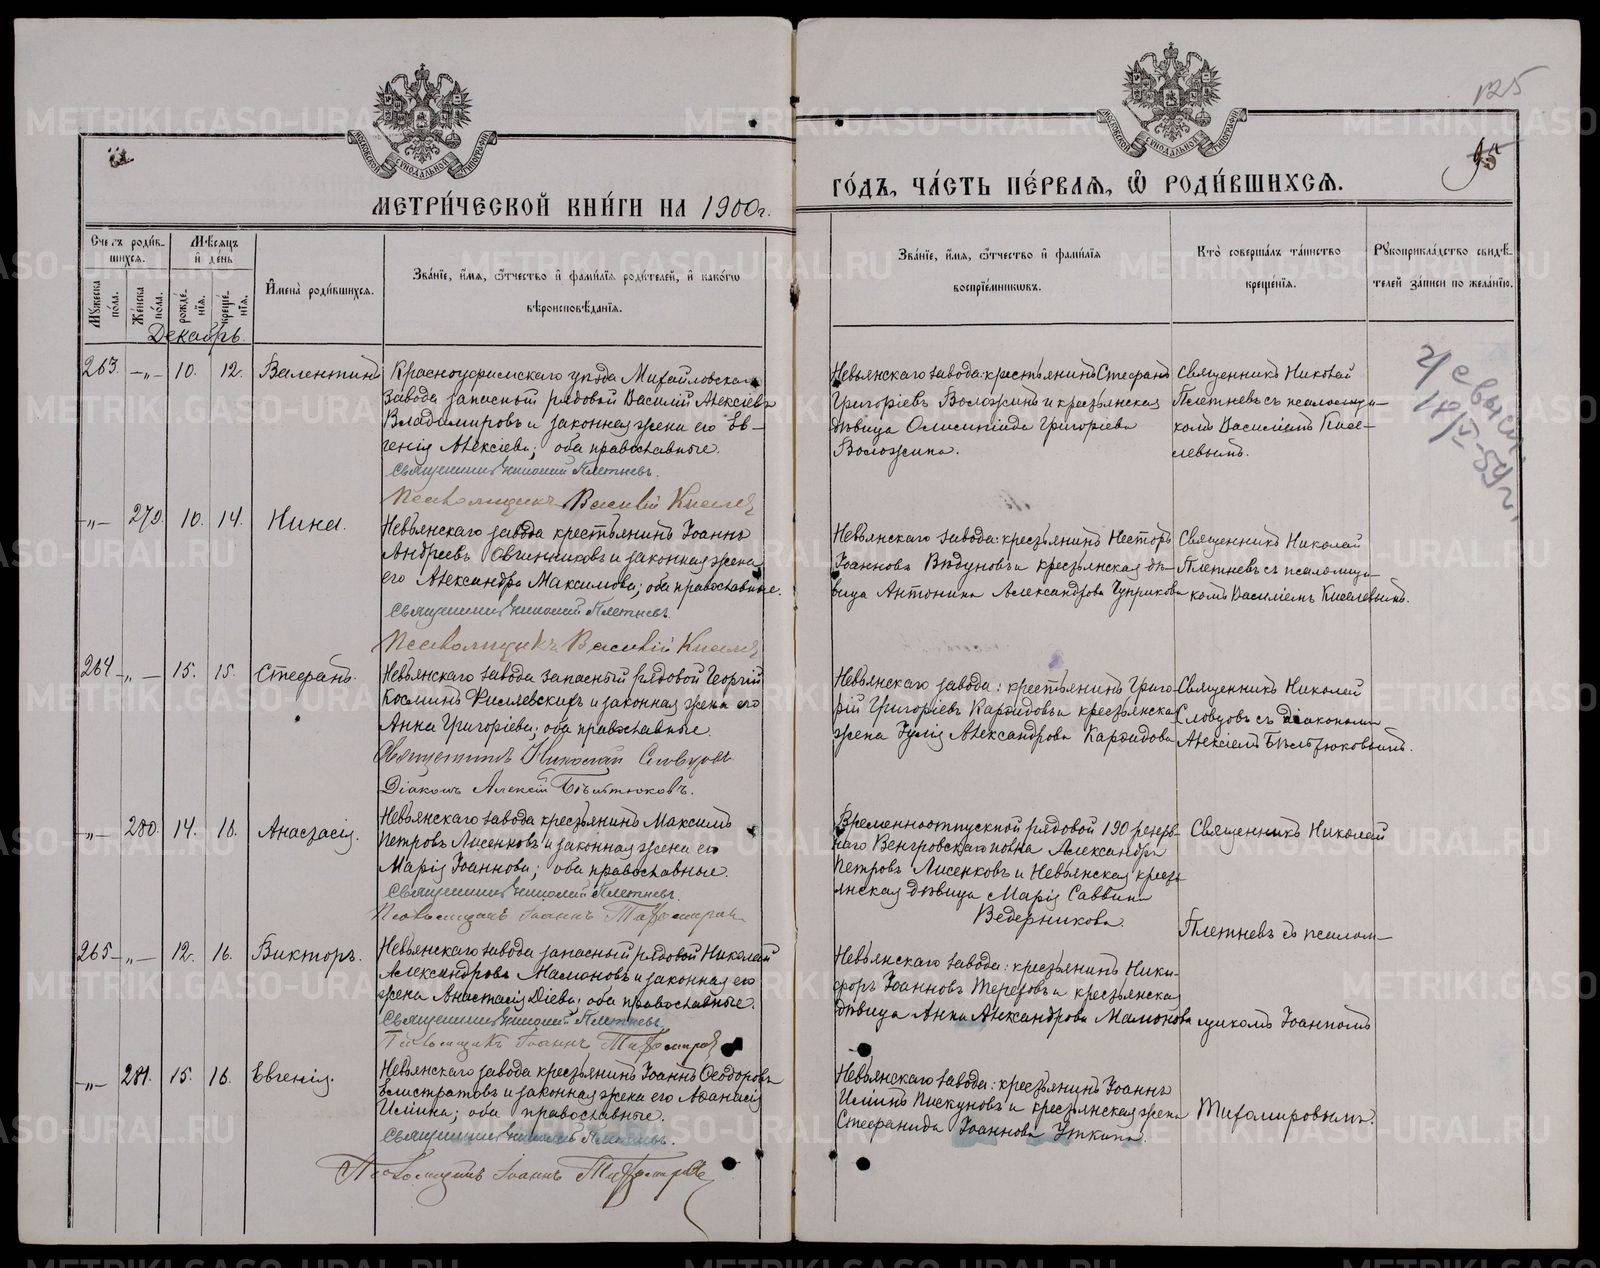 125
95
МЕТРИ́ЧЕСКОЙ КНИ́ГИ НА 1900 г.
ГО́ДЪ, ЧА́СТЬ ПЕ́РВАЯ, Ѽ РОДИ́ВШИХСЯ.
Счетъ роди́в-
шихся.
Мужеска пола.
Женска пола.
Мѣсяцъ и день
рожде-
нїя.
креще-
нїя.
Имена̀ роди́вшихся.
Зва́нїе, и́мя, ѻ́тчество и фами́лїя роди́телей, и како́гѡ
вѣроисповѣ́данїя.
Зва́нїе, и́мя, ѻ́тчество и фами́лїя
воспрїе́мникѡвъ.
Кто̀ соверша́лъ та́инство
креще́нїя.
Рукоприкла́дство свидѣ́-
телей за́писи по жела́нїю.
Декабрь.
263. —„— 10. 12. Валентинъ
Красноуфимскаго уѣзда Михайловскаго
завода запасный рядовой Василій Алексѣевъ
Владиміровъ и законная жена его Ев-
генія Алексіева; оба православные.
Священникъ Николай Плетневъ.
Псаломщикъ Василій Киселевъ
Невьянскаго завода: крестьянинъ Стефанъ
Григоріевъ Воложинъ и крестьянская
дѣвица Олимпіада Григоріева
Воложина.
Священникъ Николай
Плетневъ съ псаломщи-
комъ Василіемъ Кисе-
левымъ.
—„— 279. 10. 14. Нина.
Невьянскаго завода крестьянинъ Іоаннъ
Андреевъ Овчинниковъ и законная жена
его Александра Максимова; оба православные.
Священникъ Николай Плетневъ.
Псаломщикъ Василій Киселевъ
Невьянскаго завода: крестьянинъ Несторъ
Іоанновъ Вѣдуновъ и крестьянская дѣ-
вица Антонина Александрова Чуприкова
Священникъ Николай
Плетневъ съ псаломщи-
комъ Василіемъ Киселевымъ.
264 —„— 15. 15. Стефанъ.
Невьянскаго завода запасный рядовой Георгій
Козминъ и законная жена его
Анна Григоріева; оба православные.
Священникъ Николай Словцовъ
Діаконъ Алексій Бѣлтюковъ.
Невьянскаго завода: крестьянинъ Григо-
рій Григоріевъ и крестьянская
жена Юлія Александрова
Священникъ Николай
Словцовъ съ діакономъ
Алексіемъ Бѣлтюковымъ.
—„— 280. 14. 16. Анастасія.
Невьянскаго завода крестьянинъ Максимъ
Петровъ Лисенковъ и законная жена его
Марія Іоаннова; оба православные.
Священникъ Николай Плетневъ.
Псаломщикъ Іоаннъ Тихомировъ
Временноотпускной рядовой 190 резерв-
наго Венгровскаго полка Александръ
Петровъ Лисенковъ и Невьянская кресть-
янская дѣвица Марія Саввина
Ведерникова.
Священникъ Николай
265 —„— 12. 16. Викторъ.
Невьянскаго завода запасный рядовой Николай
Александровъ Мамоновъ и законная его
жена Анастасія Діева; оба православные.
Священникъ Николай Плетневъ
Псаломщикъ Іоаннъ Тихомировъ
Невьянскаго завода: крестьянинъ Ники-
форъ Іоанновъ Терезовъ и крестьянская
дѣвица Анна Александрова Мамонова
Плетневъ съ псалом-
щикомъ Іоанномъ
—„— 281. 15. 16. Евгенія.
Невьянскаго завода крестьянинъ Іоаннъ Ѳеодоровъ
Елистратовъ и законная жена его Аѳанасія
Ильина; оба православные.
Священникъ Николай Плетневъ.
Псаломщикъ Іоаннъ Тихомировъ
Невьянскаго завода: крестьянинъ Іоаннъ
Ильинъ Пискуновъ и крестьянская жена
Стефанида Іоаннова Уткина.
Тихомировымъ.
METRIKI.GASO-URAL.RU